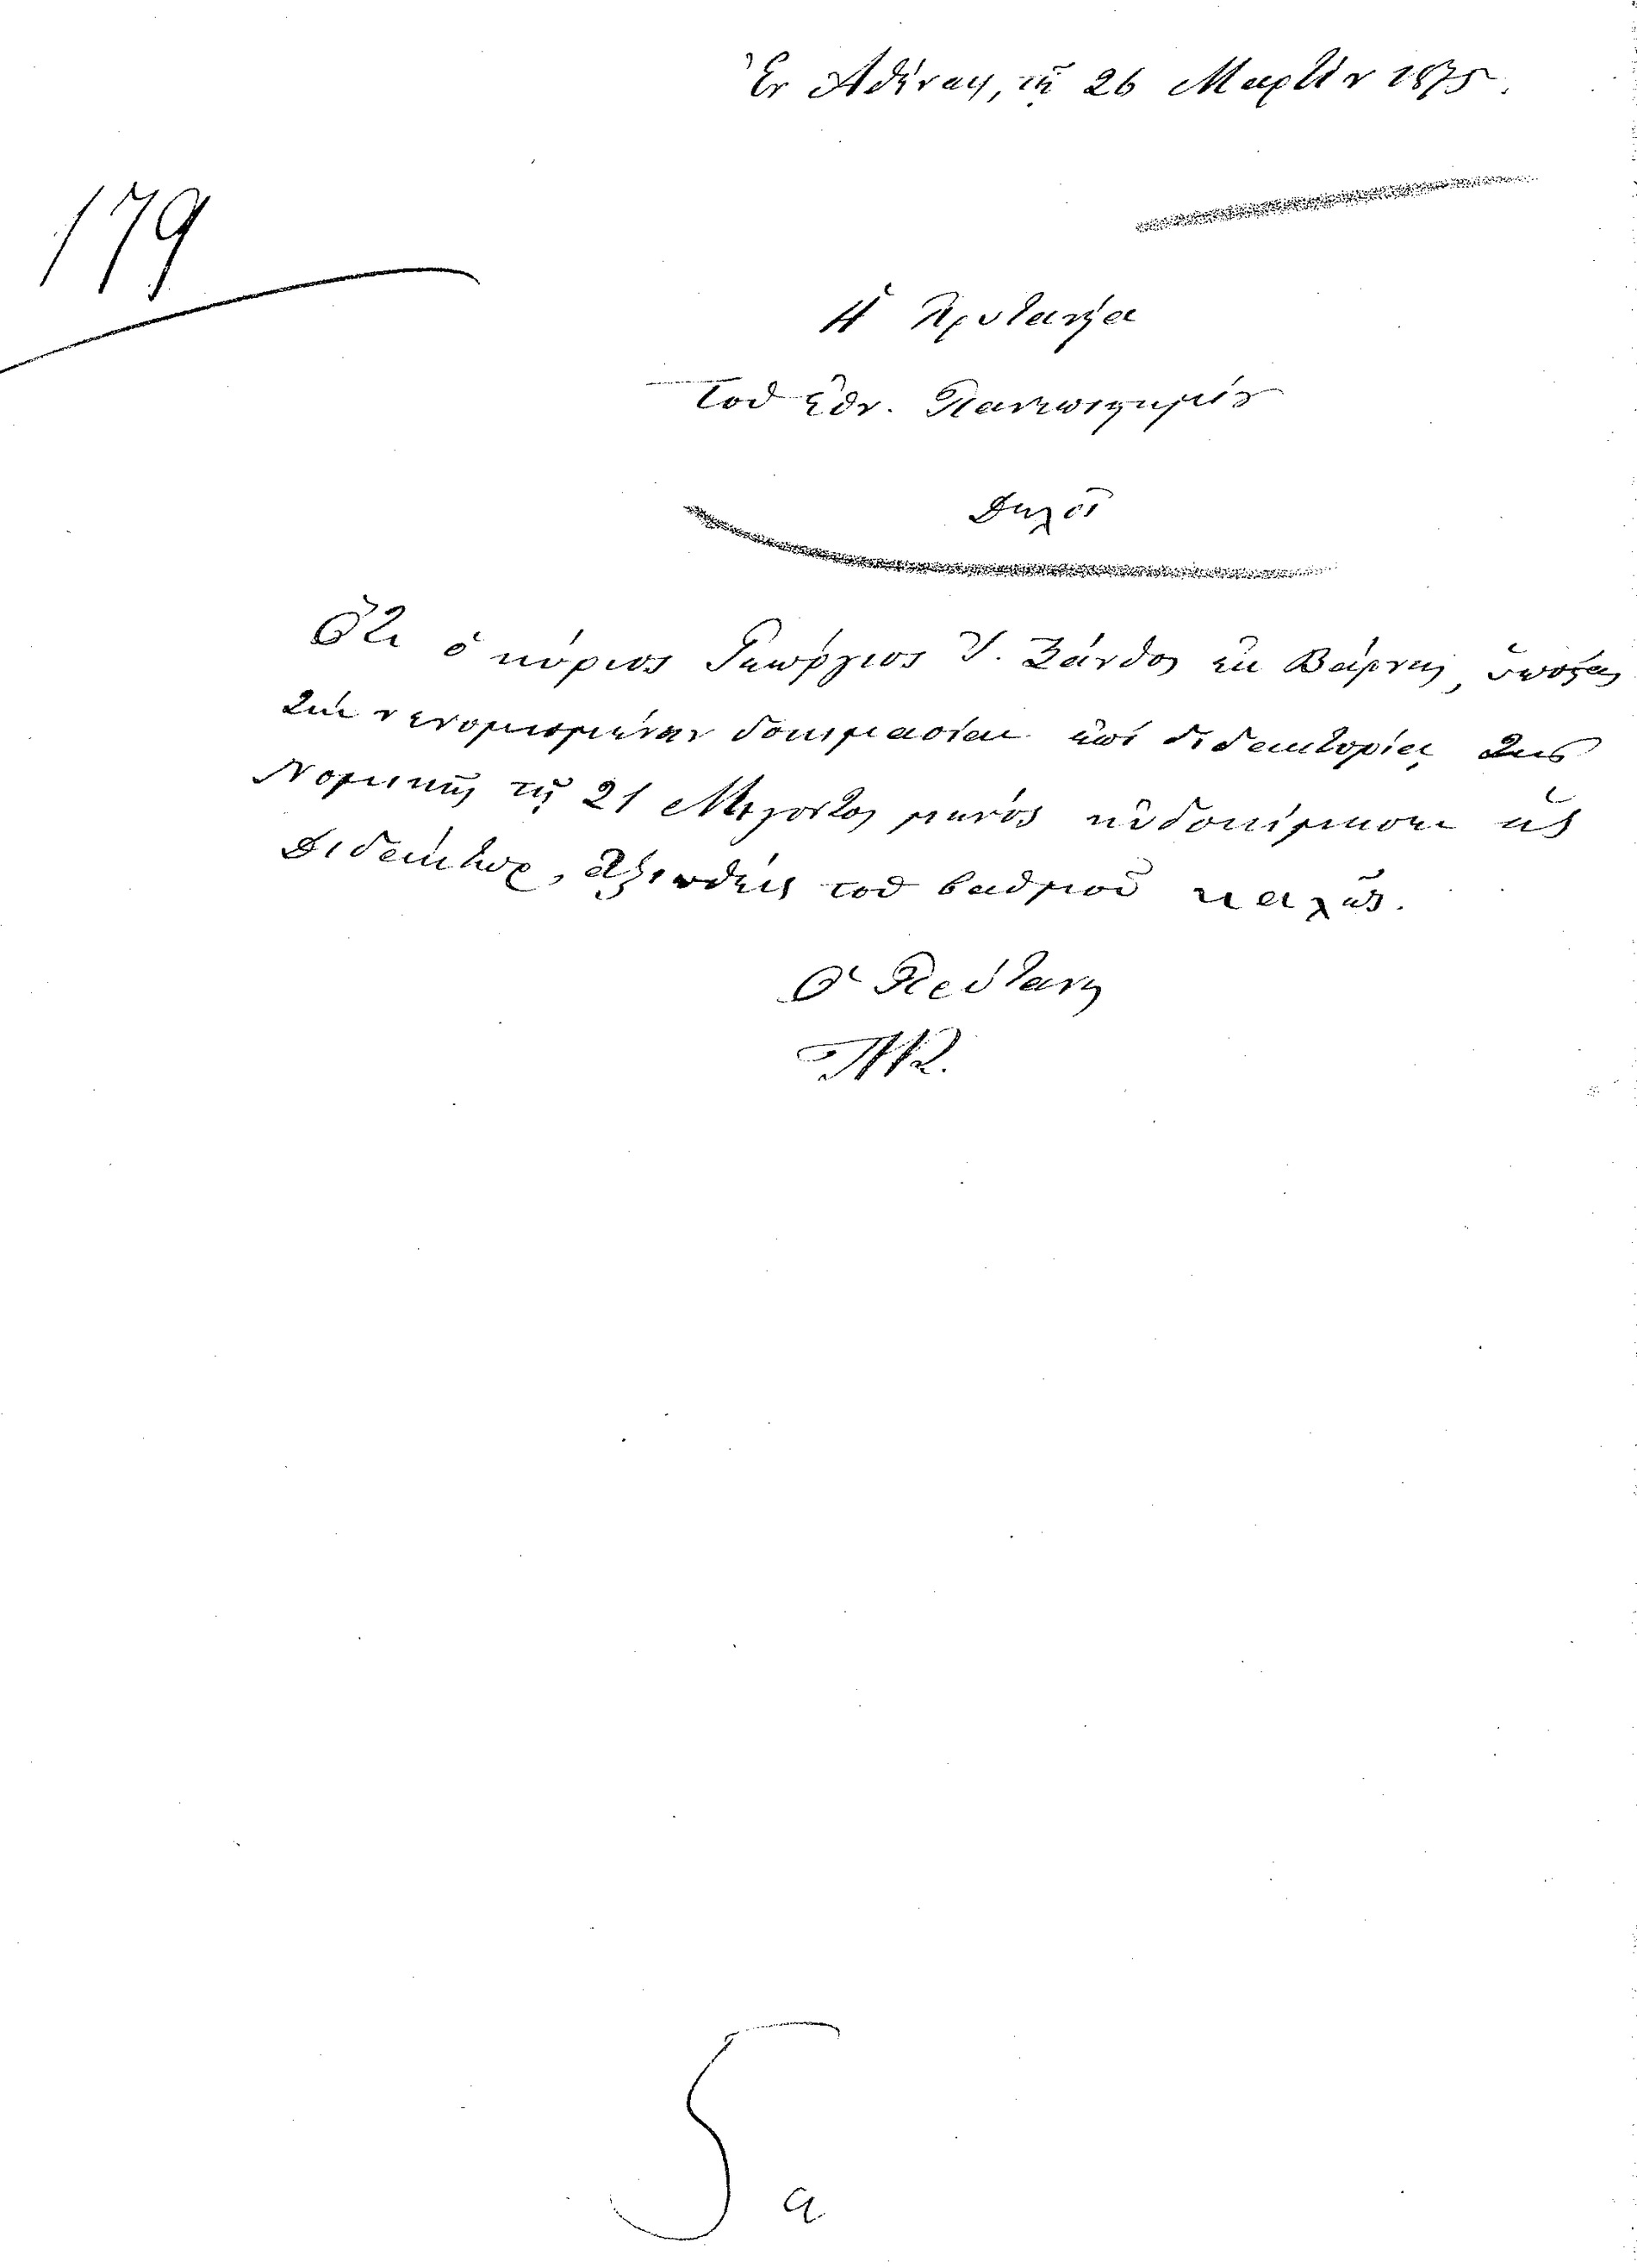 Ἐν Ἀθήναις, τῇ 26 Μαρτίου 1875.
179
Ἡ Πρυτανεία
τοῦ Ἐθν. Πανεπιστημίου
Δηλοῖ
Ὅτι ὁ κύριος Γεώργιος Ι. Ξάνθος ἐκ Βάρνης, ὑποστὰς
τὴν νενομισμένην δοκιμασίαν ἐπὶ διδακτορίᾳ τῆς
Νομικῆς τῇ 21 λήγοντος μηνὸς εὐδοκίμησεν ὡς
Διδάκτωρ, ἀξιωθεὶς τοῦ βαθμοῦ καλῶς.
Ὁ Πρύτανις
5
a